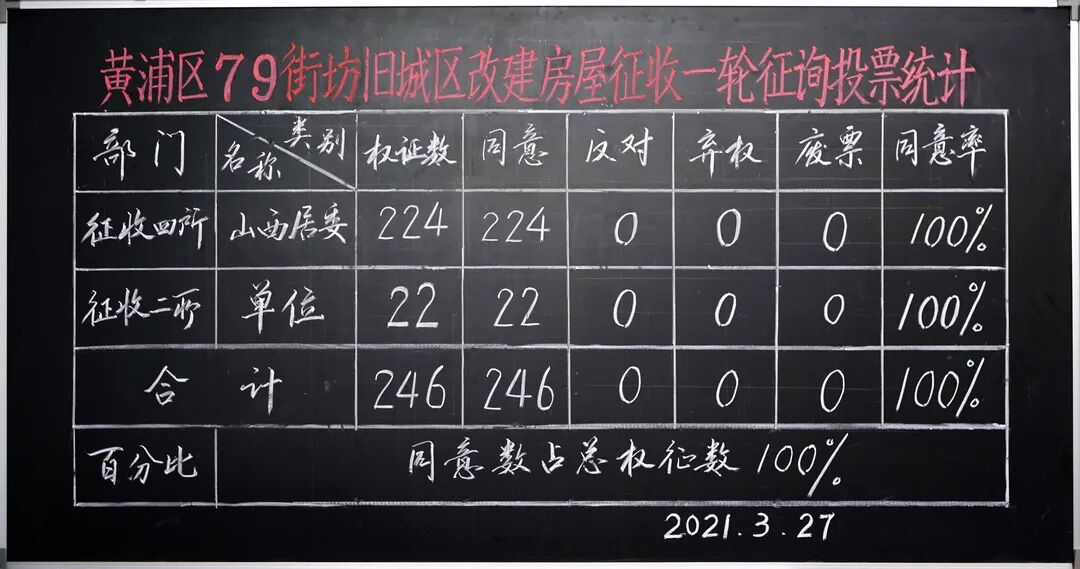 黄浦区79街坊旧城区改建房屋征收一轮征询投票统计
部门 类别 名称 权证数 同意 反对 弃权 废票 同意率
征收四所 山西居委 224 224 0 0 0 100%
征收二所 单位 22 22 0 0 0 100%
合计 246 246 0 0 0 100%
百分比 同意数占总权征数100%
2021.3.27